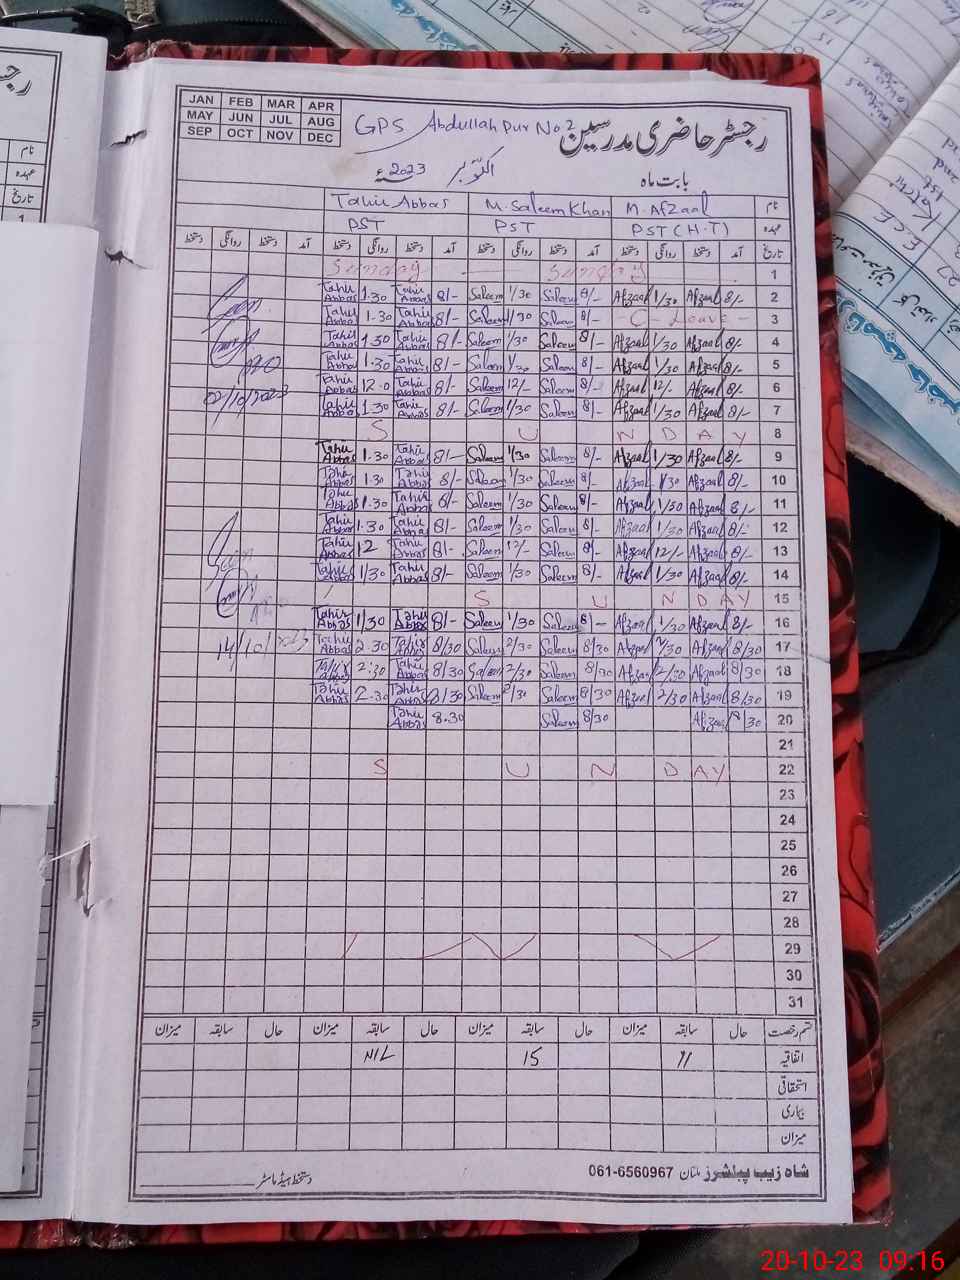 JAN FEB MAR APR
MAY JUN JUL AUG
SEP OCT NOV DEC
GPS Abdullah Pur No.2
رجسٹر حاضری مدرسین
بابت ماہ اکتوبر 2023ء
نام M. Afzaal M. Saleem Khan Tahir Abbas
عہدہ PST (H.T) PST PST
تاریخ آمد دستخط روانگی دستخط آمد دستخط روانگی دستخط آمد دستخط روانگی دستخط آمد دستخط روانگی دستخط
Sunday Sunday 1
Tahir Abbas 1.30 Tahir Abbas 8/- Saleem 1/30 Saleem 8/- Afzaal 1/30 Afzaal 8/- 2
Tahir Abbas 1.30 Tahir Abbas 8/- Saleem 1/30 Saleem 8/- - C - Leave - 3
Tahir Abbas 1.30 Tahir Abbas 8/- Saleem 1/30 Saleem 8/- Afzaal 1/30 Afzaal 8/- 4
Tahir Abbas 1.30 Tahir Abbas 8/- Saleem Saleem 8/- Afzaal 1/30 Afzaal 8/- 5
Tahir Abbas 12.0 Tahir Abbas 8/- Saleem 12/- Saleem 8/- Afzaal 12/- Afzaal 8/- 6
02/10/2023
Tahir Abbas 1.30 Tahir Abbas 8/- Saleem 1/30 Saleem 8/- Afzaal 1/30 Afzaal 8/- 7
S U N D A Y 8
Tahir Abbas 1.30 Tahir Abbas 8/- Saleem 1/30 Saleem 8/- Afzaal 1/30 Afzaal 8/- 9
Tahir Abbas 1.30 Tahir Abbas 8/- Saleem 1/30 Saleem 8/- Afzaal 1/30 Afzaal 8/- 10
Tahir Abbas 1.30 Tahir Abbas 8/- Saleem 1/30 Saleem 8/- Afzaal Afzaal 8/- 11
Tahir Abbas 1.30 Tahir Abbas 8/- Saleem 1/30 Saleem 8/- Afzaal 1/30 Afzaal 8/- 12
Tahir Abbas 12 Tahir Abbas 8/- Saleem 12/- Saleem 8/- Afzaal 12/- Afzaal 8/- 13
Tahir Abbas 1/30 Tahir Abbas 8/- Saleem 1/30 Saleem 8/- Afzaal 1/30 Afzaal 8/- 14
S U N D A Y 15
Tahir Abbas 1/30 Tahir Abbas 8/- Saleem 1/30 Saleem 8/- Afzaal 1/30 Afzaal 8/- 16
14/10/2023 Tahir Abbas 2.30 Tahir Abbas 8/30 Saleem 2/30 Saleem 8/30 Afzaal 2/30 Afzaal 8/30 17
Tahir Abbas 2:30 Tahir Abbas 8/30 Saleem 2/30 Saleem 8/30 Afzaal 2/30 Afzaal 8/30 18
Tahir Abbas 2.30 Tahir Abbas 8/30 Saleem 2/30 Saleem 8/30 Afzaal 2/30 Afzaal 8/30 19
Tahir Abbas 8.30 Saleem 8/30 Afzaal 8/30 20
21
S U N D A Y 22
23
24
25
26
27
28
29
30
31
قسم رخصت حال سابقہ میزان حال سابقہ میزان حال سابقہ میزان حال سابقہ میزان
اتفاقیہ 11 15 NIL
استحقاقی
بیماری
میزان
شاہ زیب پبلشرز ملتان 061-6560967
دستخط ہیڈ ماسٹر
20-10-23 09:16